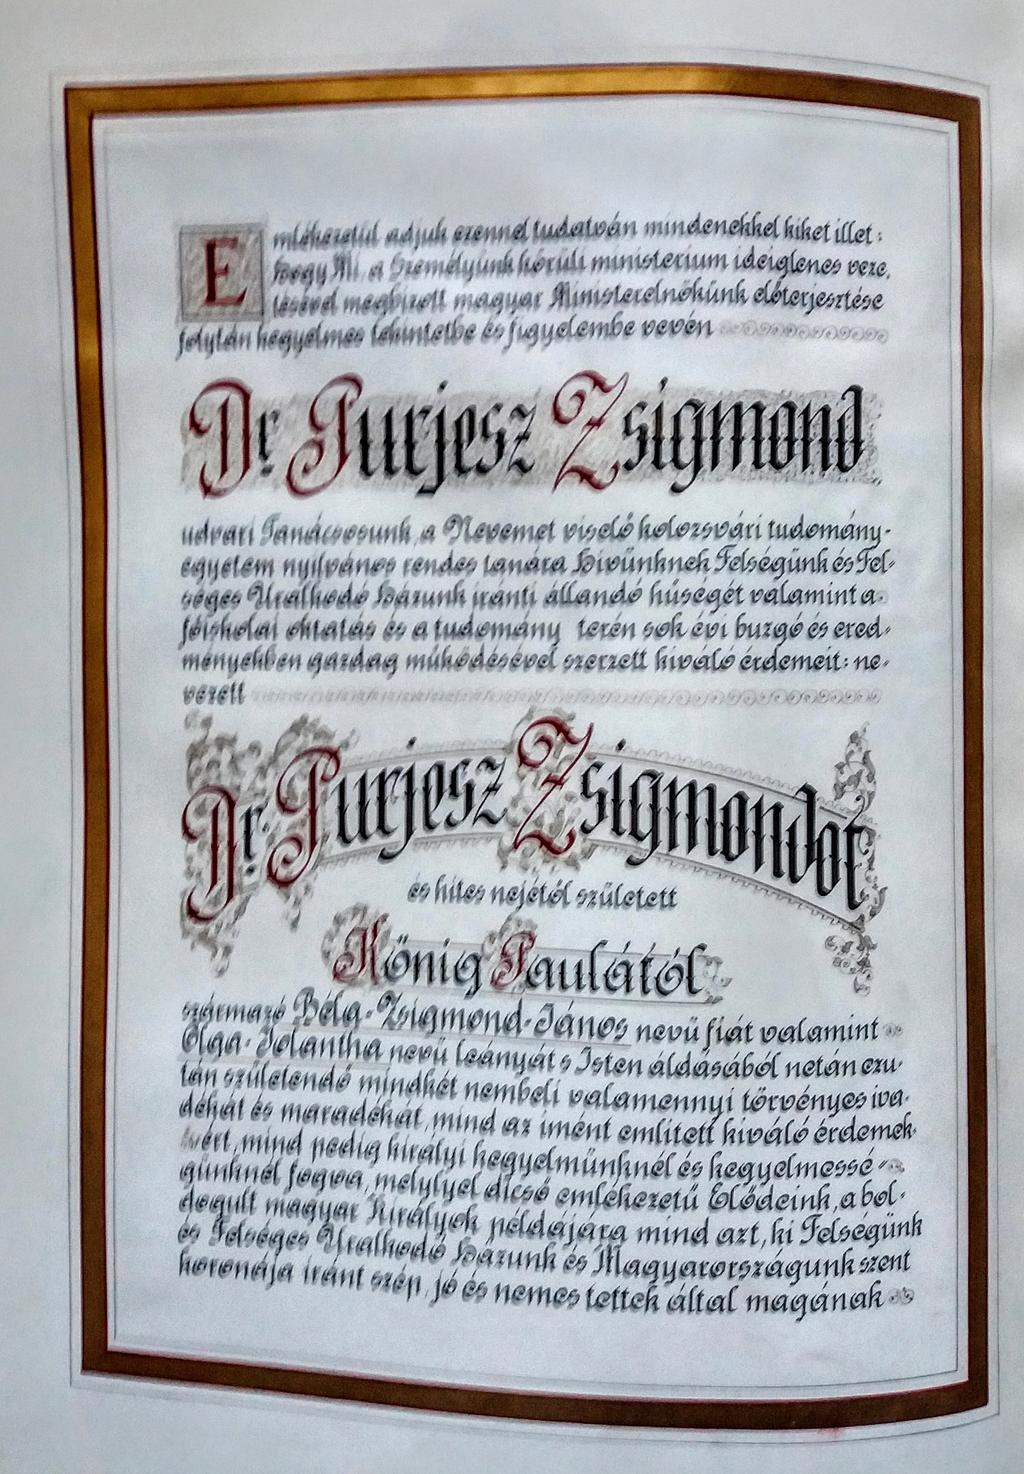 Emlékezetül adjuk ezennel tudatván mindenekkel kiket illet:
hogy Mi, a Személyünk körüli ministerium ideiglenes veze,
tésével megbizott magyar Ministerelnökünk előterjesztése
folytán kegyelmes tekintetbe és figyelembe vevén
Dr. Purjesz Zsigmond
udvari Tanácsosunk, a Nevemet viselő kolozsvári tudomány-
egyetem nyilvános rendes tanára Hivünknek Felségünk és Fel-
séges Uralkodó Házunk iránti állandó hűségét valamint a
főiskolai oktatás és a tudomány terén sok évi buzgó és ered-
ményekben gazdag működésével szerzett kiváló érdemeit: ne-
vezett
Dr. Purjesz Zsigmondot
és hites nejétől született
König Paulától
származó Béla-Zsigmond-János nevü fiát valamint
Olga-Jolantha nevü leányát s Isten áldásából netán ezu-
tán születendő mindkét nembeli valamennyi törvényes iva-
dékát és maradékát, mind az imént emlitett kiváló érdemek-
ért, mind pedig királyi kegyelmünknél és kegyelmessé-
günknél fogva, melylyel dicső emlékezetű Elődeink, a bol-
dogult magyar Királyok példájára mind azt, ki Felségünk
és Felséges Uralkodó Házunk és Magyarországunk szent
koronája iránt szép, jó és nemes tettek által magának